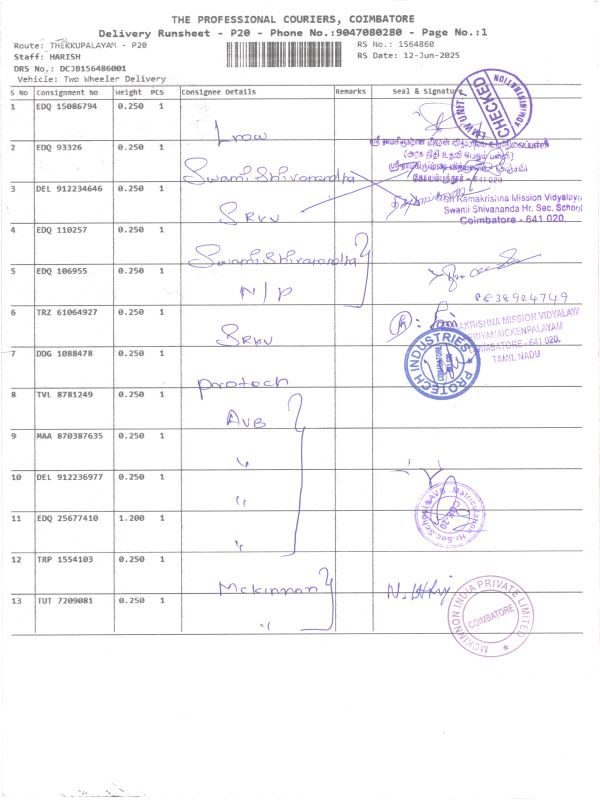 THE PROFESSIONAL COURIERS, COIMBATORE
Delivery Runsheet - P20 - Phone No.:9047080280 - Page No.:1
Route: THEKKUPALAYAM - P20
RS No.: 1564860
Staff: HARISH
RS Date: 12-Jun-2025
DRS No.: DCJB156486001
Vehicle: Two Wheeler Delivery
S No Consignment No Weight PCS Consignee Details Remarks Seal & Signature
1 EDQ 15086794 0.250 1
CHECKED
2 EDQ 93326 0.250 1 Swami Shivanandha
3 DEL 912234646 0.250 1 SRKV
Sri Ramakrishna Mission Vidyalaya
Swami Shivananda Hr. Sec. School
Coimbatore - 641 020.
4 EDQ 110257 0.250 1 Swami Shivanandha
5 EDQ 106955 0.250 1 N/P
8638924749
6 TRZ 61064927 0.250 1 SRKV
RAMAKRISHNA MISSION VIDYALAYA
PERIYANAICKENPALAYAM
COIMBATORE - 641 020.
TAMIL NADU
7 DDG 1088478 0.250 1 Protech
PROTECH INDUSTRIES
COIMBATORE
8 TVL 8781249 0.250 1 AVB
9 MAA 870387635 0.250 1 "
10 DEL 912236977 0.250 1 "
A.V.B. Matriculation Hr. Sec. School
11 EDQ 25677410 1.200 1 "
12 TRP 1554103 0.250 1 Mckinnon
13 TUT 7209081 0.250 1 "
MCKINNON INDIA PRIVATE LIMITED
COIMBATORE